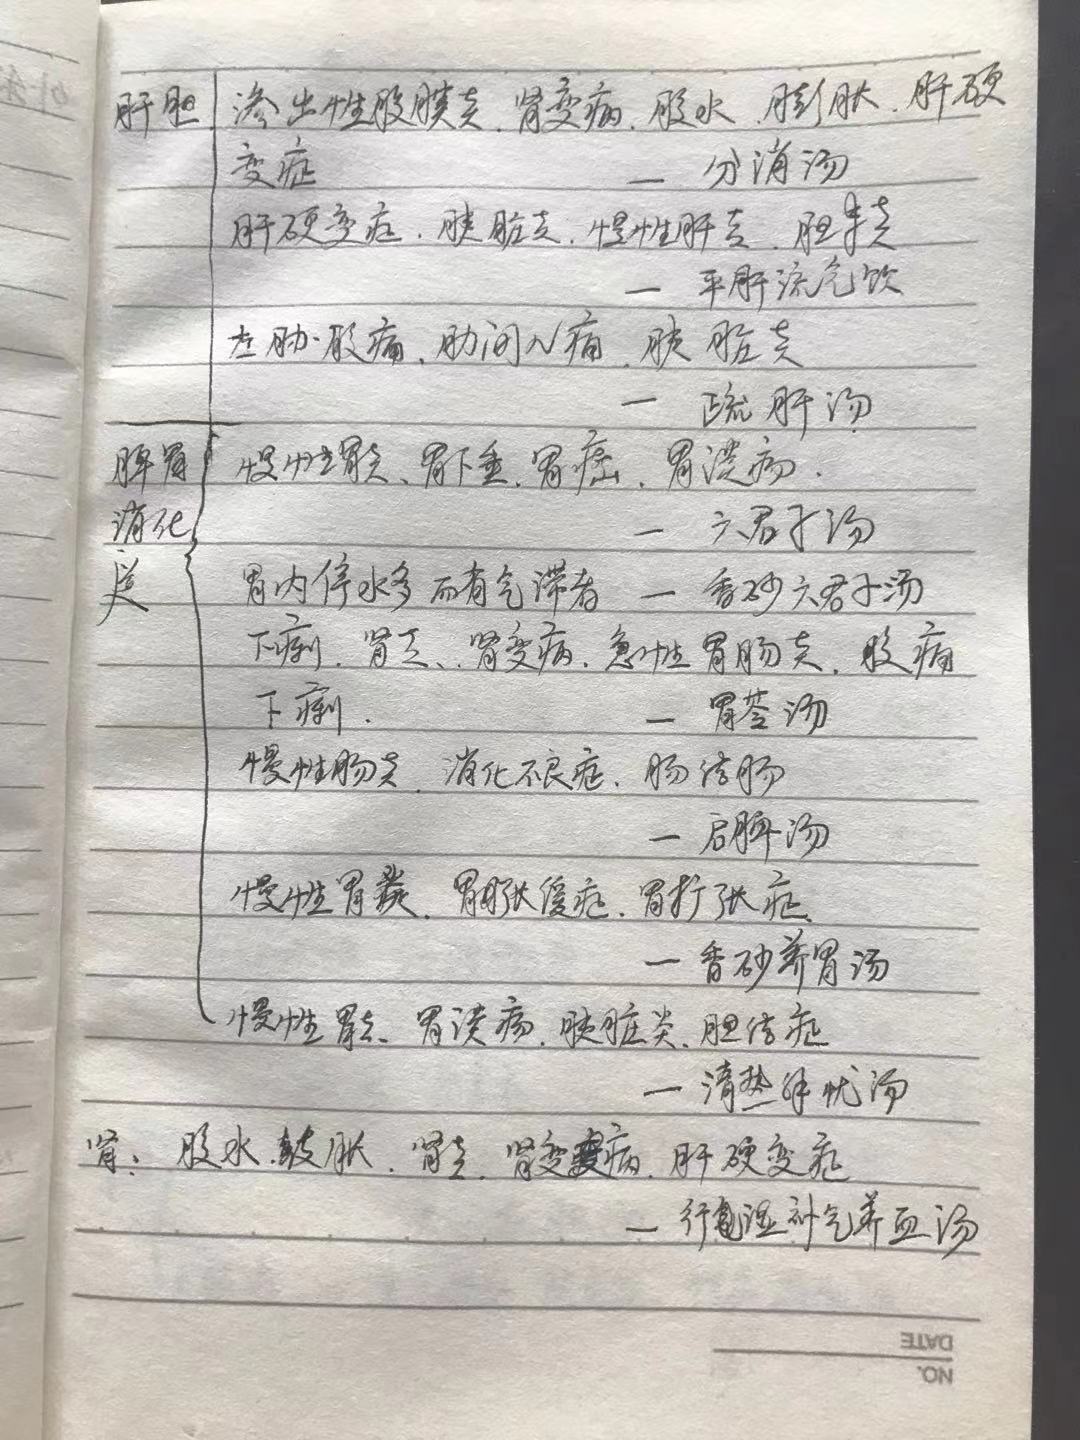 肝胆 渗出性腹膜炎、肾变病、腹水、膨胀、肝硬
变症 — 分消汤
肝硬变症、胰脏炎、慢性肝炎、胆囊炎
— 平肝流气饮
左胁腹痛、肋间N痛、胰脏炎
— 疏肝汤
脾胃 慢性胃炎、胃下垂、胃癌、胃溃疡、
消化 — 六君子汤
道 胃内停水多而有气滞者 — 香砂六君子汤
下痢、肾炎、肾变病、急性胃肠炎、腹痛
下痢、 — 胃苓汤
慢性肠炎、消化不良症、肠结肠
— 启脾汤
慢性胃炎、胃张缓症、胃扩张症、
— 香砂养胃汤
慢性胃炎、胃溃疡、胰脏炎、胆结症
— 清热解忧汤
肾: 腹水、鼓胀、肾炎、肾变病、肝硬变症
— 行湿补气养血汤
DATE
NO.